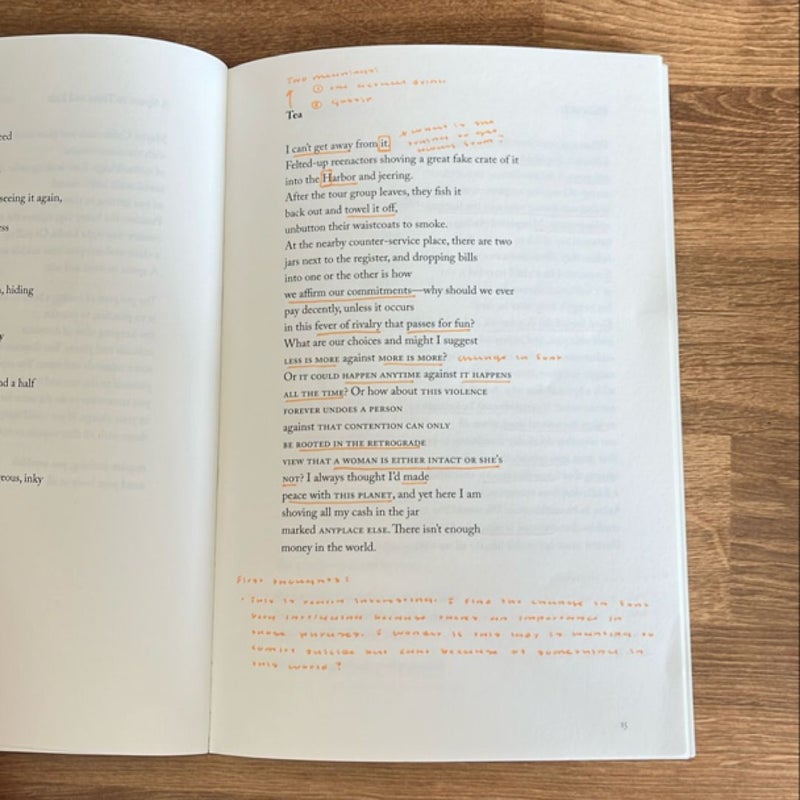 eed
seeing it again,
ess
, hiding
y
nd a half
eous, inky
Two meanings:
① the actual drink
② gossip
Tea
* what is the
I can't get away from it.
Felted-up reenactors shoving a great fake crate of it
into the Harbor and jeering.
After the tour group leaves, they fish it
back out and towel it off,
unbutton their waistcoats to smoke.
At the nearby counter-service place, there are two
jars next to the register, and dropping bills
into one or the other is how
we affirm our commitments—why should we ever
pay decently, unless it occurs
in this fever of rivalry that passes for fun?
What are our choices and might I suggest
LESS IS MORE against MORE IS MORE? change in font
Or IT COULD HAPPEN ANYTIME against IT HAPPENS
ALL THE TIME? Or how about THIS VIOLENCE
FOREVER UNDOES A PERSON
against THAT CONTENTION CAN ONLY
BE ROOTED IN THE RETROGRADE
VIEW THAT A WOMAN IS EITHER INTACT OR SHE'S
NOT? I always thought I'd made
peace with THIS PLANET, and yet here I am
shoving all my cash in the jar
marked ANYPLACE ELSE. There isn't enough
money in the world.
First thoughts:
• This is really interesting. I find the change in font
very intriguing because there's an importance in
those phrases. I wonder is this lady is wanting to
commit suicide but cant because of something in
this world?
15